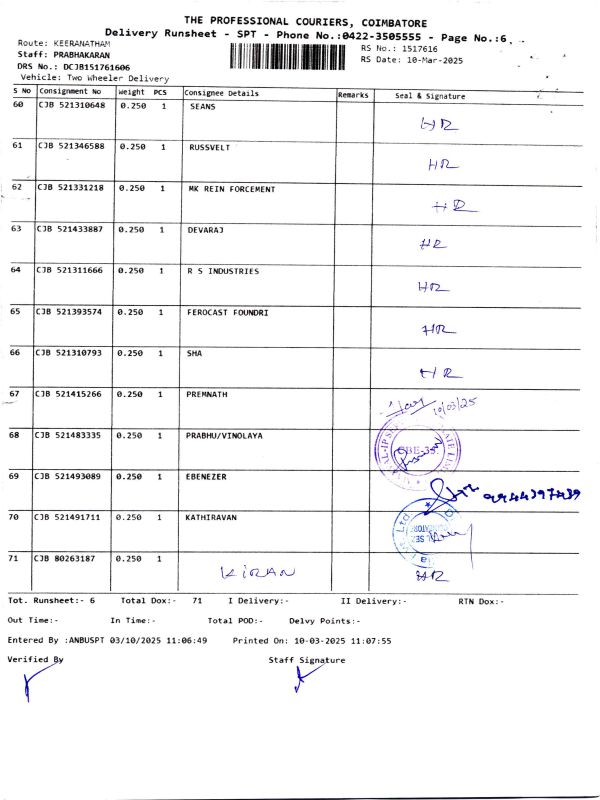 THE PROFESSIONAL COURIERS, COIMBATORE
Delivery Runsheet - SPT - Phone No.:0422-3505555 - Page No.:6
Route: KEERANATHAM
Staff: PRABHAKARAN
DRS No.: DCJB151761606
Vehicle: Two Wheeler Delivery
RS No.: 1517616
RS Date: 10-Mar-2025
S No Consignment No Weight PCS Consignee Details Remarks Seal & Signature
60 CJB 521310648 0.250 1 SEANS HR
61 CJB 521346588 0.250 1 RUSSVELT HR
62 CJB 521331218 0.250 1 MK REIN FORCEMENT HR
63 CJB 521433887 0.250 1 DEVARAJ HR
64 CJB 521311666 0.250 1 R S INDUSTRIES HR
65 CJB 521393574 0.250 1 FEROCAST FOUNDRI HR
66 CJB 521310793 0.250 1 SHA HR
67 CJB 521415266 0.250 1 PREMNATH 10/03/25
68 CJB 521483335 0.250 1 PRABHU/VINOLAYA CBE-35.
69 CJB 521493089 0.250 1 EBENEZER
70 CJB 521491711 0.250 1 KATHIRAVAN
71 CJB 80263187 0.250 1 KIRAN HR
Tot. Runsheet:- 6 Total Dox:- 71 I Delivery:- II Delivery:- RTN Dox:-
Out Time:- In Time:- Total POD:- Delvy Points:-
Entered By :ANBUSPT 03/10/2025 11:06:49 Printed On: 10-03-2025 11:07:55
Verified By Staff Signature